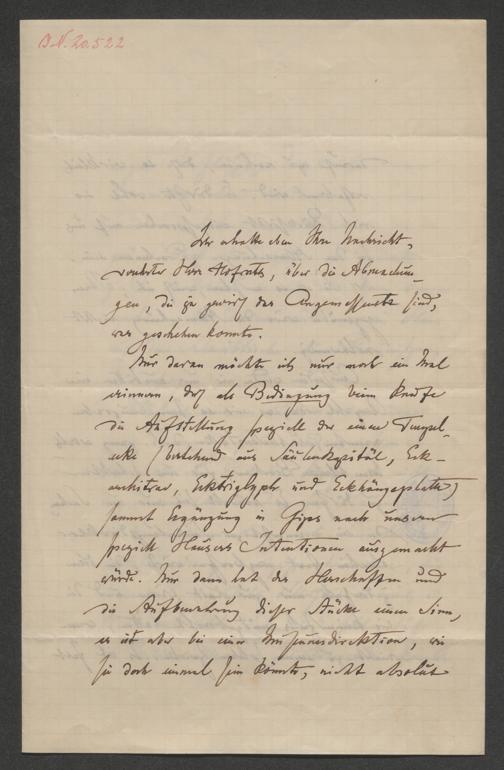 B.N. 20.522
Ich erhalte eben Ihre Nachricht,
verehrter Herr Hofrath, über die Abmachun-
gen, die ja gewiß das Angemessenste sind,
was geschehen konnte.
Nur daran möchte ich nur noch ein Mal
erinnern, daß als Bedingung beim Kaufe
die Aufstellung speziell der einen Tempel-
ecke (bestehend aus Säulenkapitäl, Eck-
architrav, Ecktriglyph und Eckhängeplatte)
sammt Ergänzung in Gips nach unseren
speziell Hausers Intentionen ausgemacht
würde. Nur dann hat das Herschaffen und
die Aufbewahrung dieser Stücke einen Sinn,
es ist aber bei einer Museumsdirektion, wie
sie doch einmal sein könnte, nicht absolut